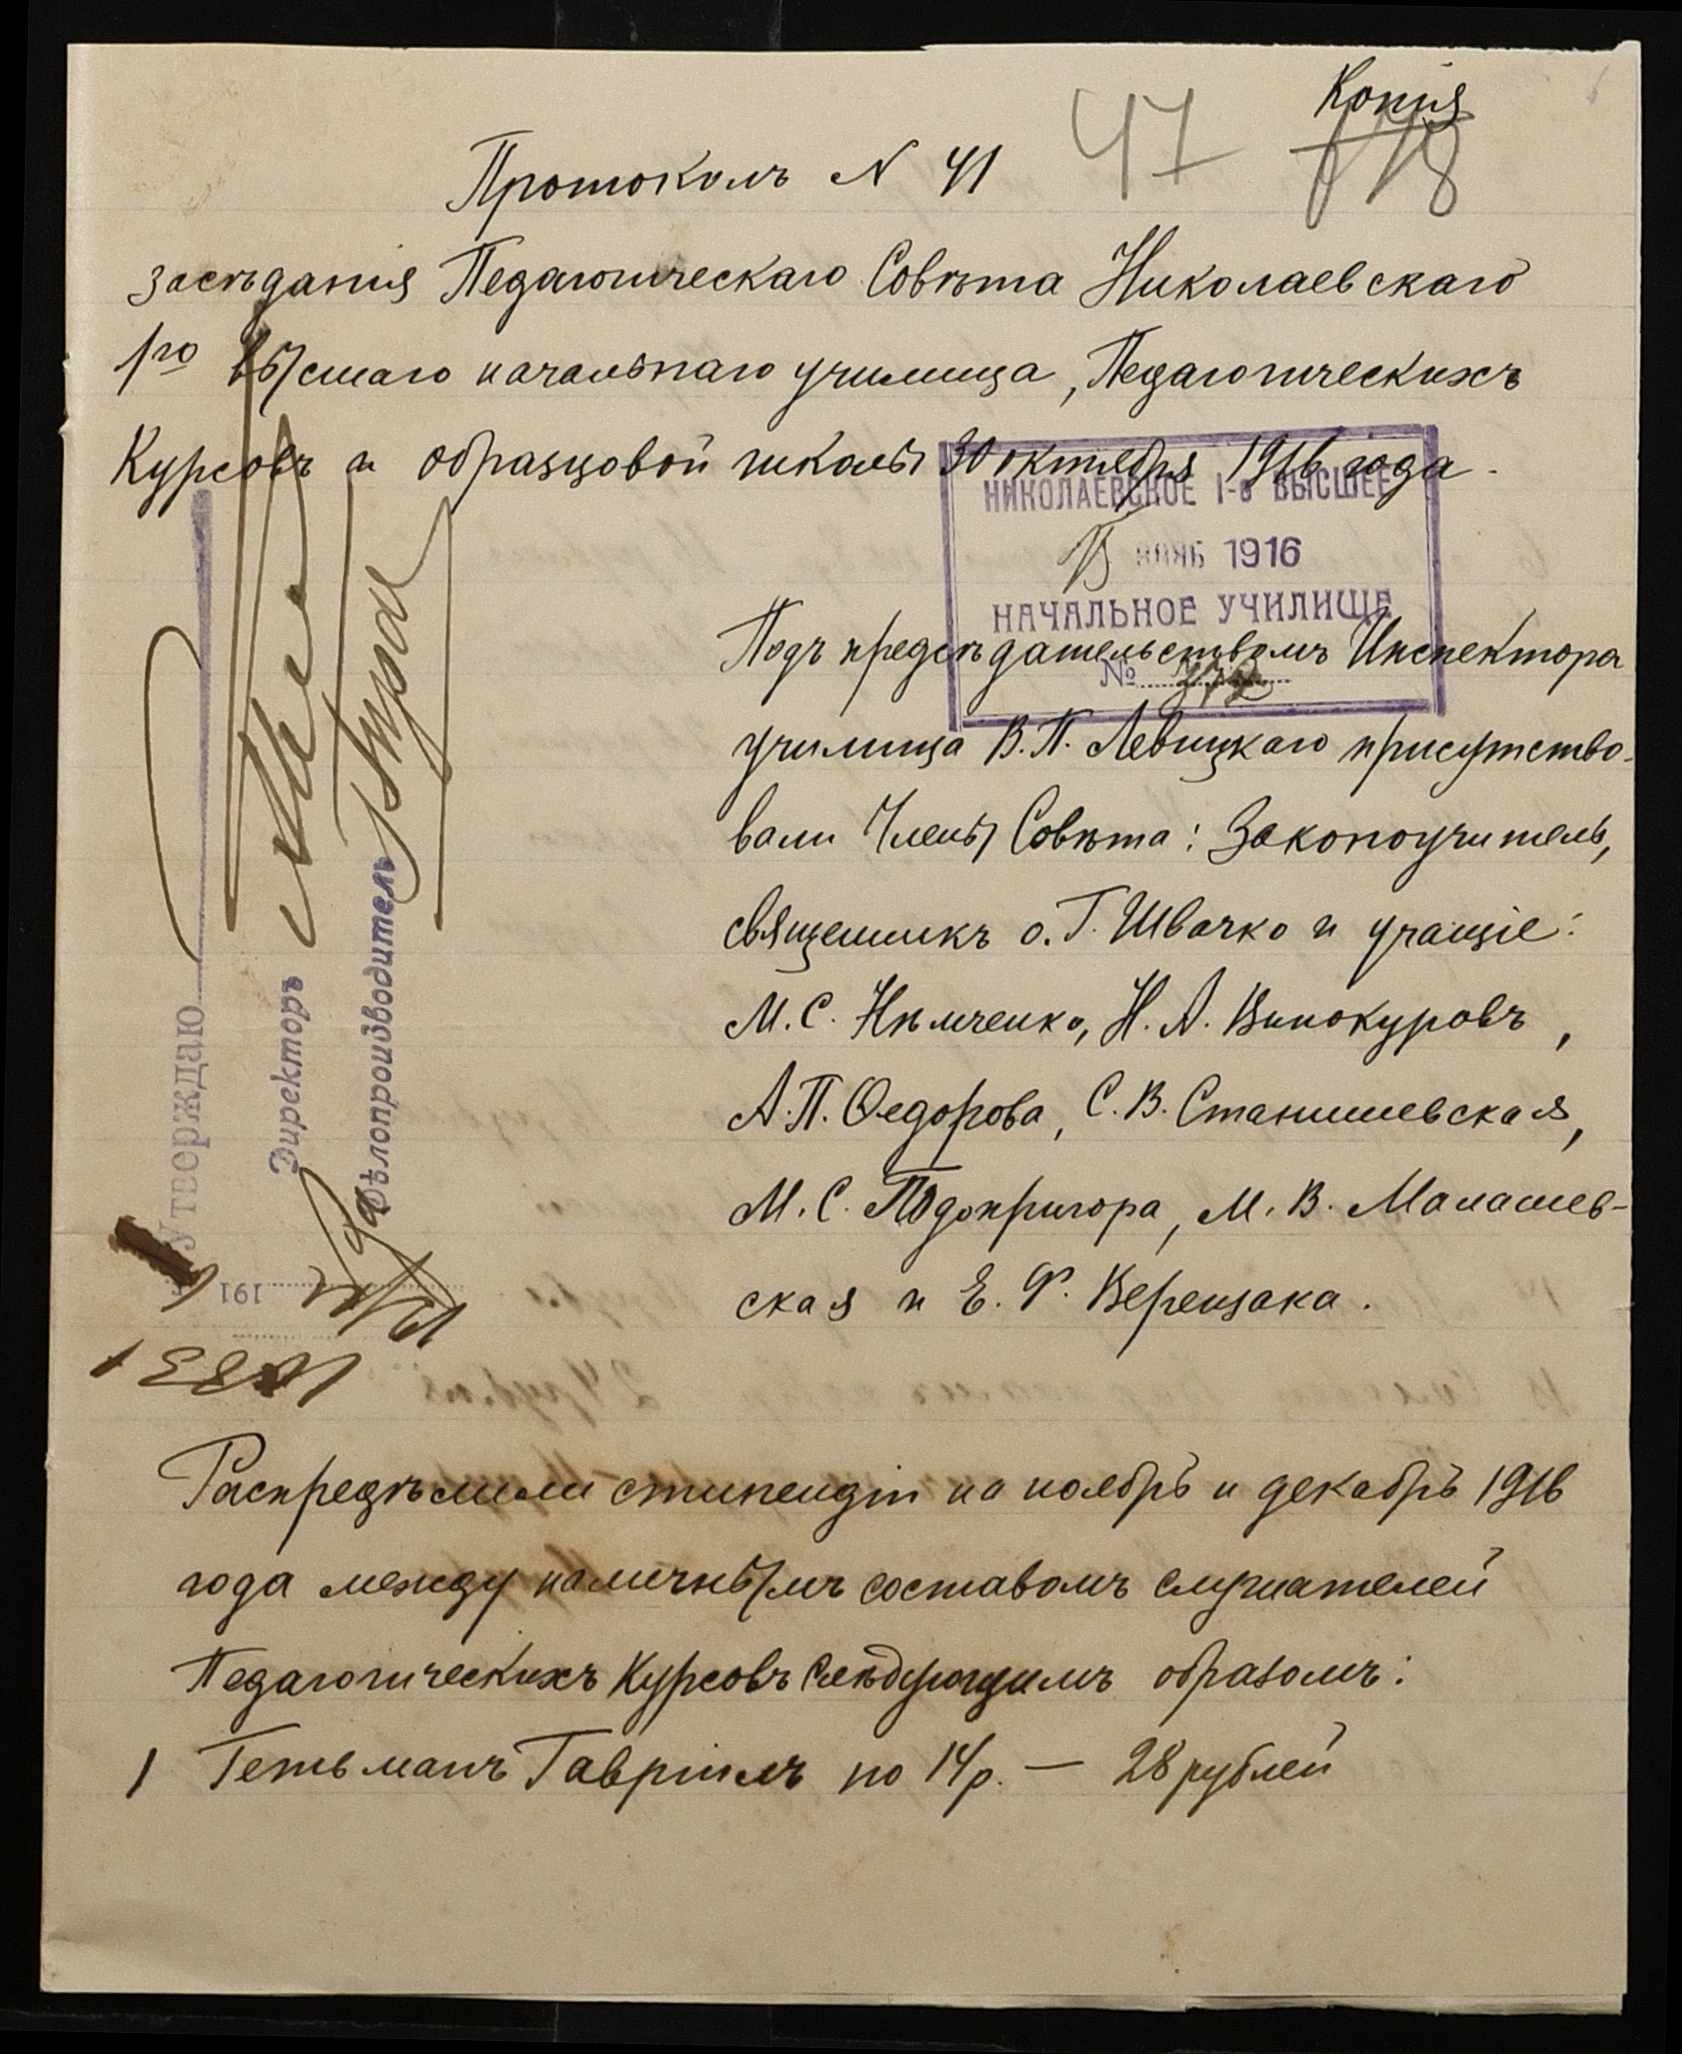 Копія
47
Протоколъ N 41
засѣданія Педагогическаго Совѣта Николаевскаго
1го высшаго начальнаго училища, Педагогическихъ
Курсовъ и образцовой школы 30 октября 1916 года.
НИКОЛАЕВСКОЕ 1-е ВЫСШЕЕ
15 НОЯБ 1916
НАЧАЛЬНОЕ УЧИЛИЩЕ
№
Подъ предсѣдательствомъ Инспектора
училища В. П. Левицкаго присутство-
вали Члены Совѣта: Законоучитель,
священникъ о. Г. Швачко и учащіе:
М. С. Нѣмченко, Н. А. Винокуровъ,
А. П. Ѳедорова, С. В. Станишевская,
М. С. Подопригора, М. В. Малашев-
ская и Е. Ф. Верещака.
Утверждаю
Директоръ
Дѣлопроизводитель
191
Распредѣлили стипендіи на ноябрь и декабрь 1916
года между наличнымъ составомъ слушателей
Педагогическихъ Курсовъ слѣдующимъ образомъ:
1 Гетьманъ Гавріилъ по 14 р. — 28 рублей